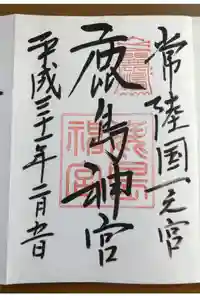 常陸国一之宮
鹿島神宮
平成三十一年二月五日
鹿島神宮